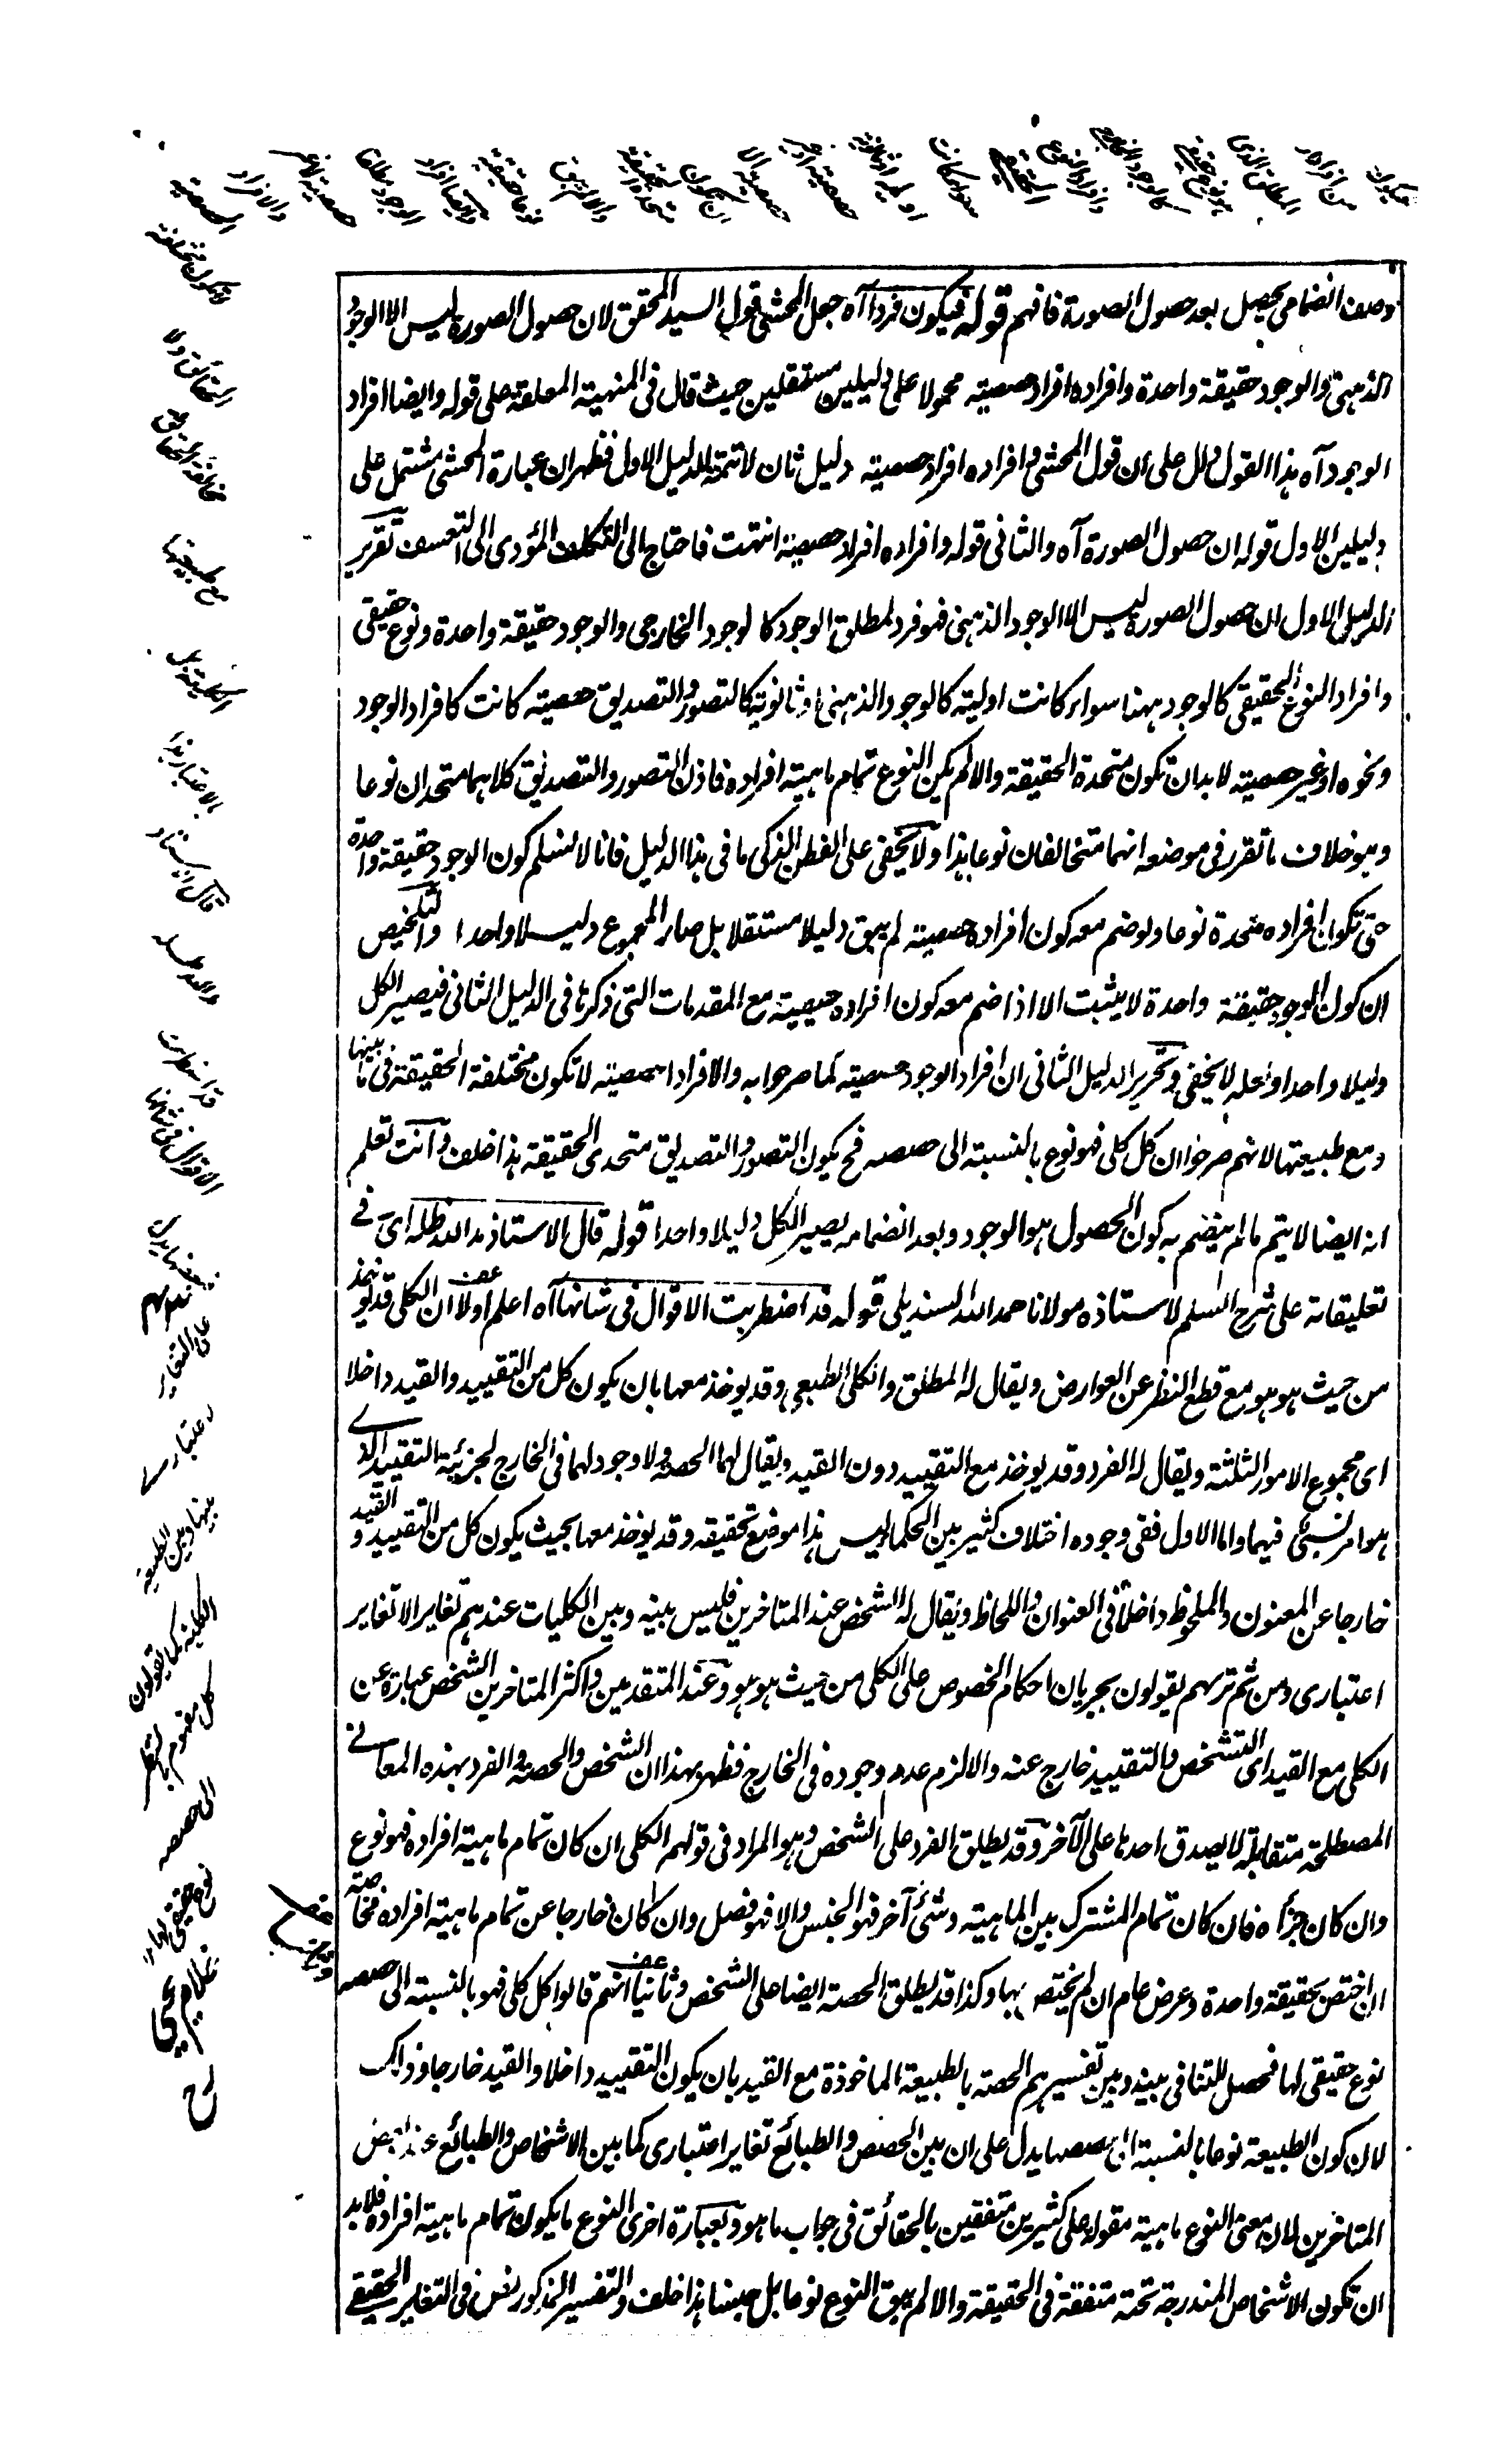 وصف انضمامى يحصل بعد حصول الصورة فافهم قوله فيكون فردا آه جعل المحشى قول السيد المحقق لان حصول الصورة ليس الا الوجود
الذهنى والوجود حقيقة واحدة وافراده افراد حصصية محمولا على دليلين مستقلين حيث قال فى المنهية المعلقة على قوله وايضا افراد
الوجود آه هذا القول دل على ان قول المحشى وافراده افراد حصصية دليل ثان لا تتمة للدليل الاول فظهر ان عبارة المحشى مشتمل على
دليلين الاول قوله ان حصول الصورة آه والثانى قوله وافراده افراد حصصية انتهت فاحتاج الى التكلف المؤدى الى التعسف تقرير
الدليل الاول ان حصول الصورة ليس الا الوجود الذهنى فهو فرد لمطلق الوجود كالوجود الخارجى والوجود حقيقة واحدة ونوع حقيقى
وافراد النوع الحقيقى كالوجود ههنا سواء كانت اولية كالوجود الذهنى او ثانوية كالتصور والتصديق حصصية كانت كافراد الوجود
ونحوه او غير حصصية لا بد ان تكون متحدة الحقيقة والا لم يكن النوع تمام ماهية افراده فاذن التصور والتصديق كلاهما متحدان نوعا
وهو خلاف ما تقرر فى موضعه انهما متخالفان نوعا هذا ولا يخفى على الفطن الذكى ما فى هذا الدليل فانا لا نسلم كون الوجود حقيقة واحدة
حتى تكون افراده متحدة نوعا ولو ضم معه كون افراده حصصية لم يبق دليلا مستقلا بل صار المجموع دليلا واحدا والتلخيص
ان كون الوجود حقيقة واحدة لا يثبت الا اذا ضم معه كون افراده حصصية مع المقدمات التى ذكرنا فى الدليل الثانى فيصير الكل
دليلا واحدا ولعله لا يخفى وتحرير الدليل الثانى ان افراد الوجود حصصية كما صرحوا به والافراد الحصصية لا تكون مختلفة الحقيقة فى ما بينها
ومع طبيعتها لانهم صرحوا ان كل كلى فهو نوع بالنسبة الى حصصه فح يكون التصور والتصديق متحدى الحقيقة هذا خلف وانت تعلم
انه ايضا لا يتم ما لم ينضم به كون الحصول هو الوجود وبعد انضمامه يصير الكل دليلا واحدا قوله قال الاستاذ مد الله ظله اى فى
تعليقاته على شرح السلم لاستاذه مولانا حمد الله السنديلى قوله قد اضطربت الاقوال فى شانها آه اعلم اولا ان الكلى قد يوخذ
من حيث هو هو مع قطع النظر عن العوارض ويقال له المطلق والكلى الطبعى وقد يوخذ معها بان يكون كل من التقييد والقيد داخلا
اى مجموع الامور الثلثة ويقال له الفرد وقد يوخذ مع التقييد دون القيد ويقال لها الحصة ولا وجود لهما فى الخارج لجزئية التقييد الذى
هو امر نسبى فيهما واما الاول ففى وجوده اختلاف كثير بين الحكماء ليس هذا موضع تحقيقه وقد يوخذ معها بحيث يكون كل من التقييد والقيد
خارجا عن المعنون والملحوظ داخلا فى العنوان واللحاظ ويقال له الشخص عند المتاخرين فليس بينه وبين الكليات عندهم تغاير الا تغاير
اعتبارى ومن ثم تريهم يقولون بجريان احكام الخصوص على الكلى من حيث هو هو وعند المتقدمين واكثر المتاخرين الشخص عبارة عن
الكلى مع القيد اى التشخص والتقييد خارج عنه والا لزم عدم وجوده فى الخارج فظهر بهذا ان الشخص والحصة والفرد بهذه المعانى
المصطلحة متقابلة لا يصدق احدها على الآخر وقد يطلق الفرد على الشخص وهو المراد فى قولهم الكلى ان كان تمام ماهية افراده فهو نوع
وان كان جزأه فان كان تمام المشترك بين الماهية وشئ آخر فهو الجنس والا فهو فصل وان كان خارجا عن تمام ماهية افراده فخاصة
ان اختص بحقيقة واحدة وعرض عام ان لم يختص بها وكذا قد يطلق الحصة ايضا على الشخص وثانيا انهم قالوا كل كلى فهو بالنسبة الى حصصه
نوع حقيقى لها فحصل التنافى بينه وبين تفسيرهم الحصة بالطبيعة الماخوذة مع القيد بان يكون التقييد داخلا والقيد خارجا وذلك
لان كون الطبيعة نوعا بالنسبة الى حصصها يدل على ان بين الحصص والطبائع تغاير اعتبارى كما بين الاشخاص والطبائع عند بعض
المتاخرين لان معنى النوع ماهية مقولة على كثيرين متفقين بالحقائق فى جواب ما هو وبعبارة اخرى النوع ما يكون تمام ماهية افراده فلا بد
ان تكون الاشخاص المندرجة تحته متفقة فى الحقيقة والا لم يبق النوع نوعا بل جنسا هذا خلف والتفسير المذكور نص فى التغاير الحقيقى
الحصصية
لا تكون مختلفة
الحقائق ولا
مخالفة الحقائق
مع طبيعتها
الكلية بل
بالاعتبار هذا
قال الاستاذ
قد اضطربت
الاقوال فى شانها
على التغاير
اعتبارى
بينها وبين الطبيعة
الكلية كما يقولون
كل مفهوم بالنظر
الى حصصه
نوع حقيقى
غلام يحيى
رح